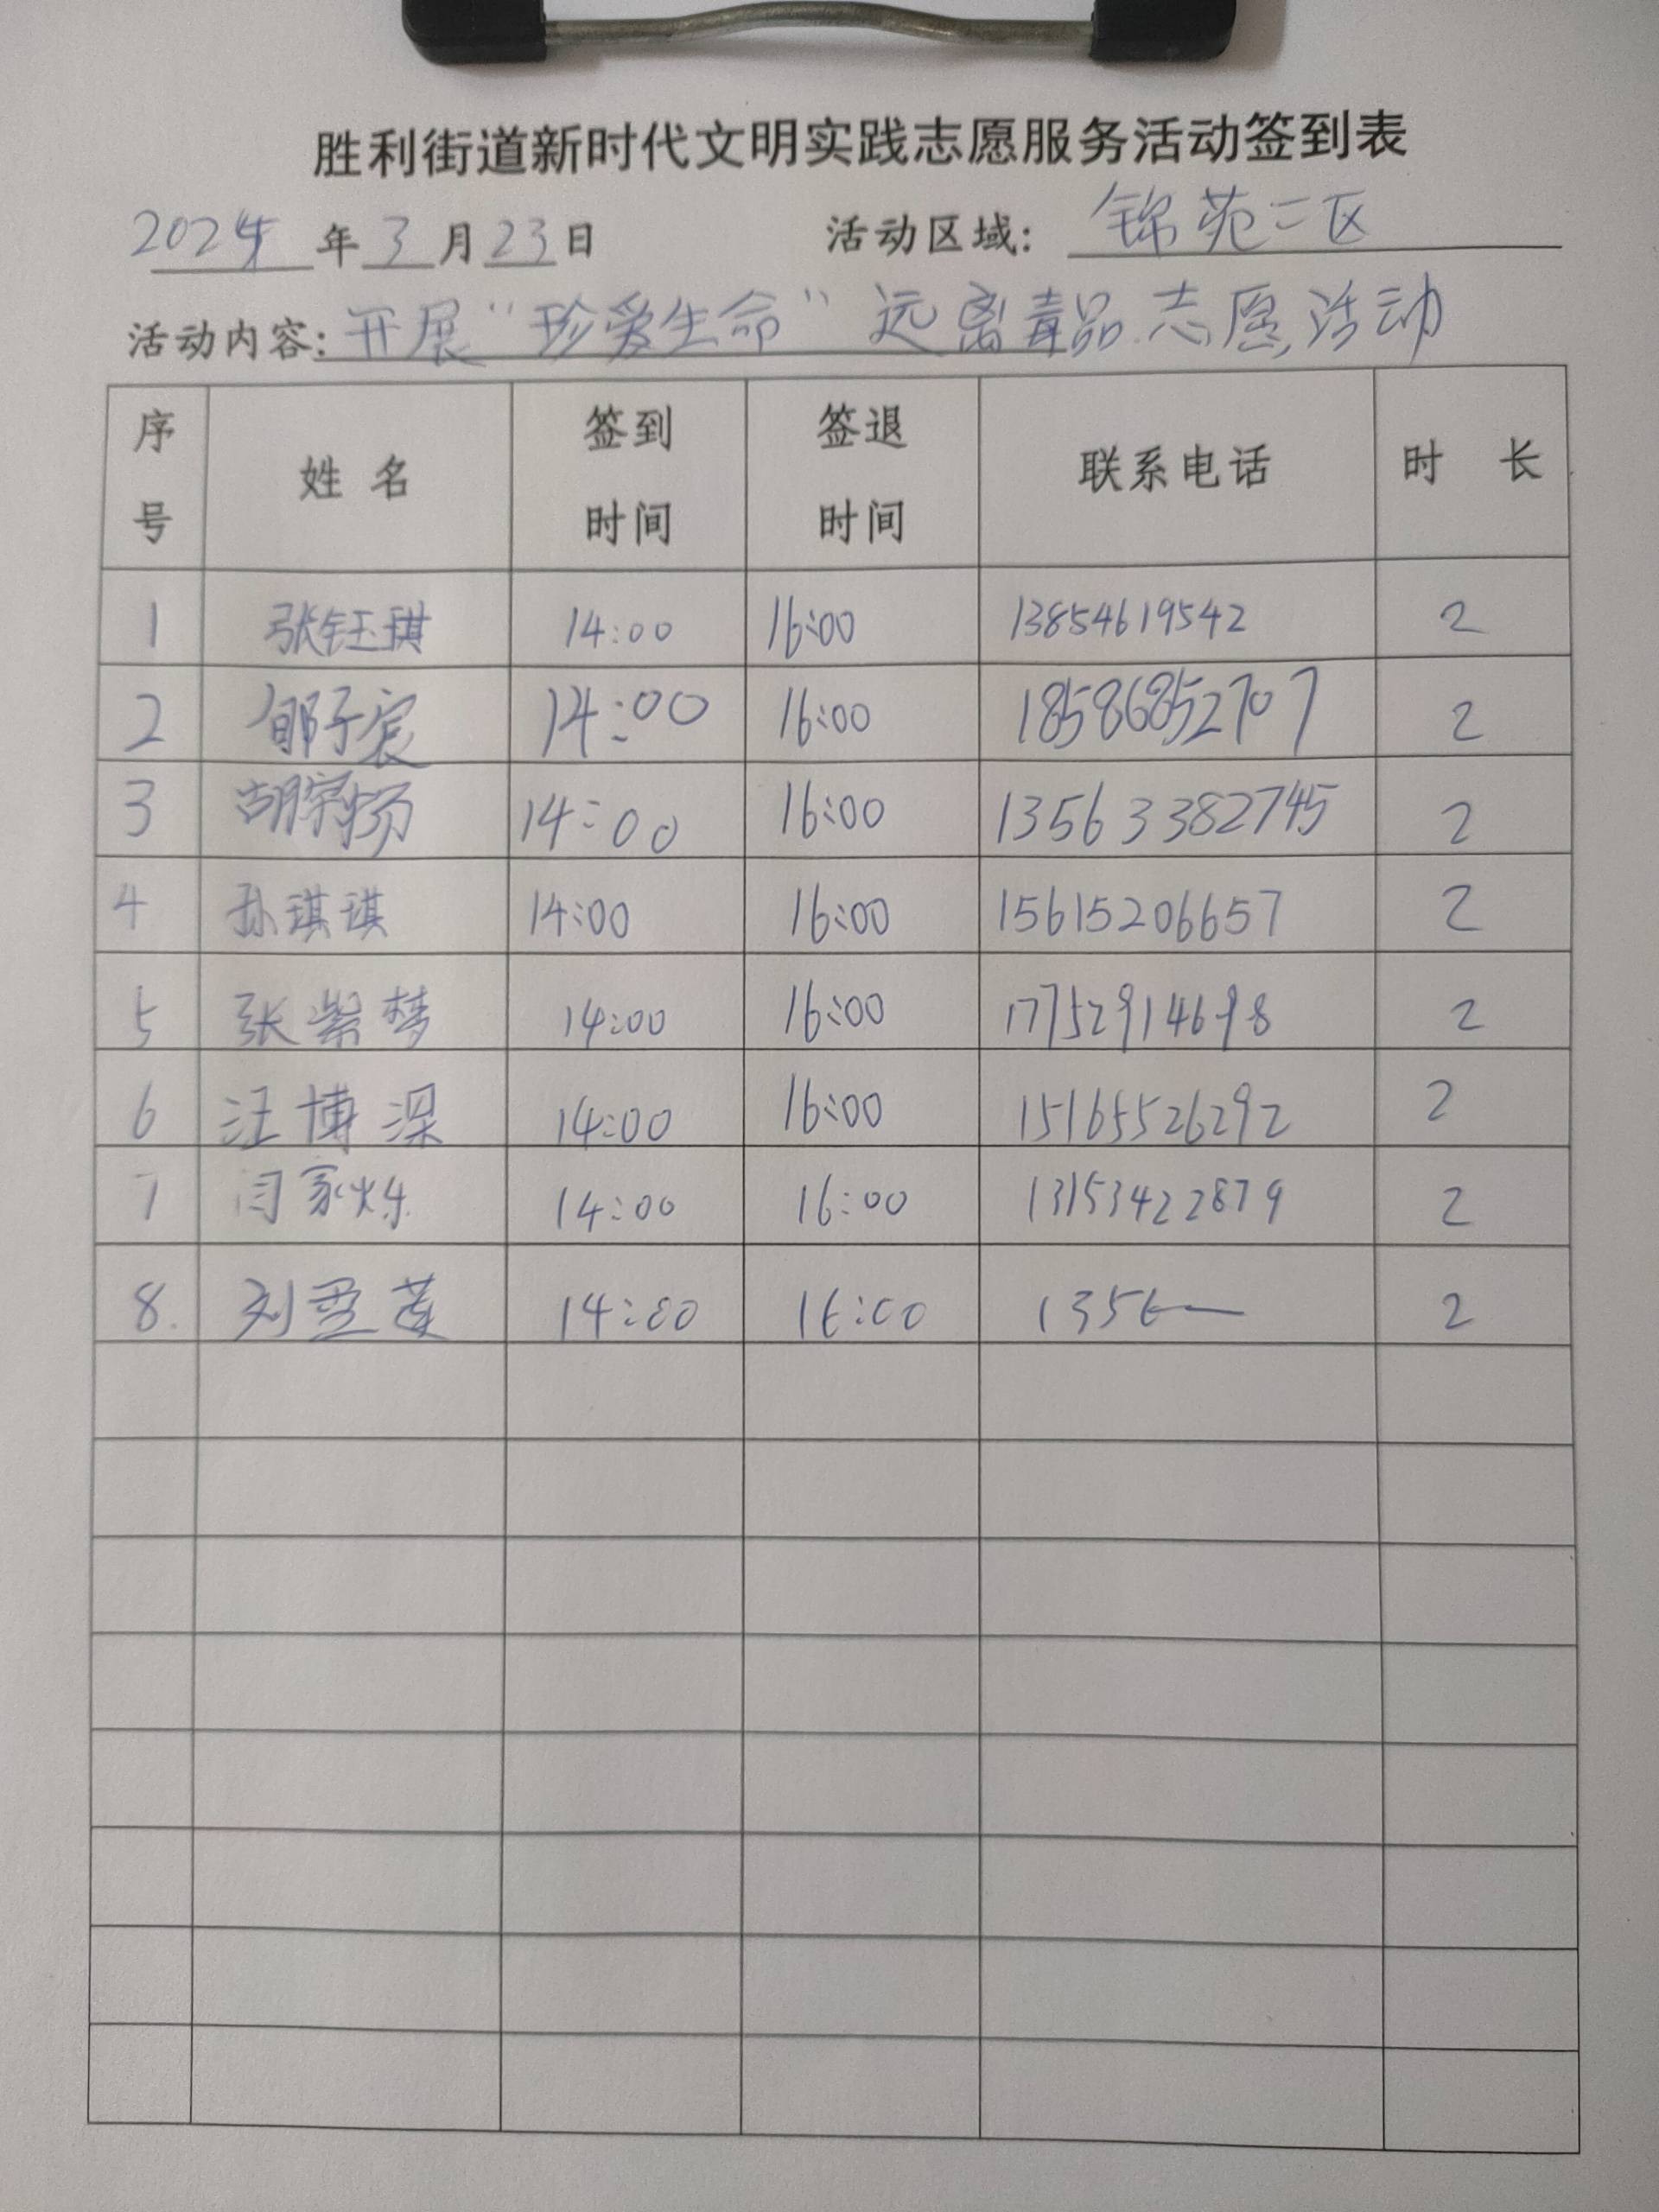 胜利街道新时代文明实践志愿服务活动签到表
2024年 年 3 月 23 日 活动区域: 锦苑二区
活动内容: 开展“珍爱生命”远离毒品志愿活动
序号 姓名 签到时间 签退时间 联系电话 时长
1 张钰琪 14:00 16:00 13854619542 2
2 郇子宸 14:00 16:00 18586852707 2
3 胡宇扬 14:00 16:00 13563382745 2
4 孙琪琪 14:00 16:00 15615206657 2
5 张紫梦 14:00 16:00 17752914698 2
6 汪博深 14:00 16:00 15165526292 2
7 闫家烁 14:00 16:00 13153422879 2
8. 刘雪莲 14:00 16:00 1356— 2